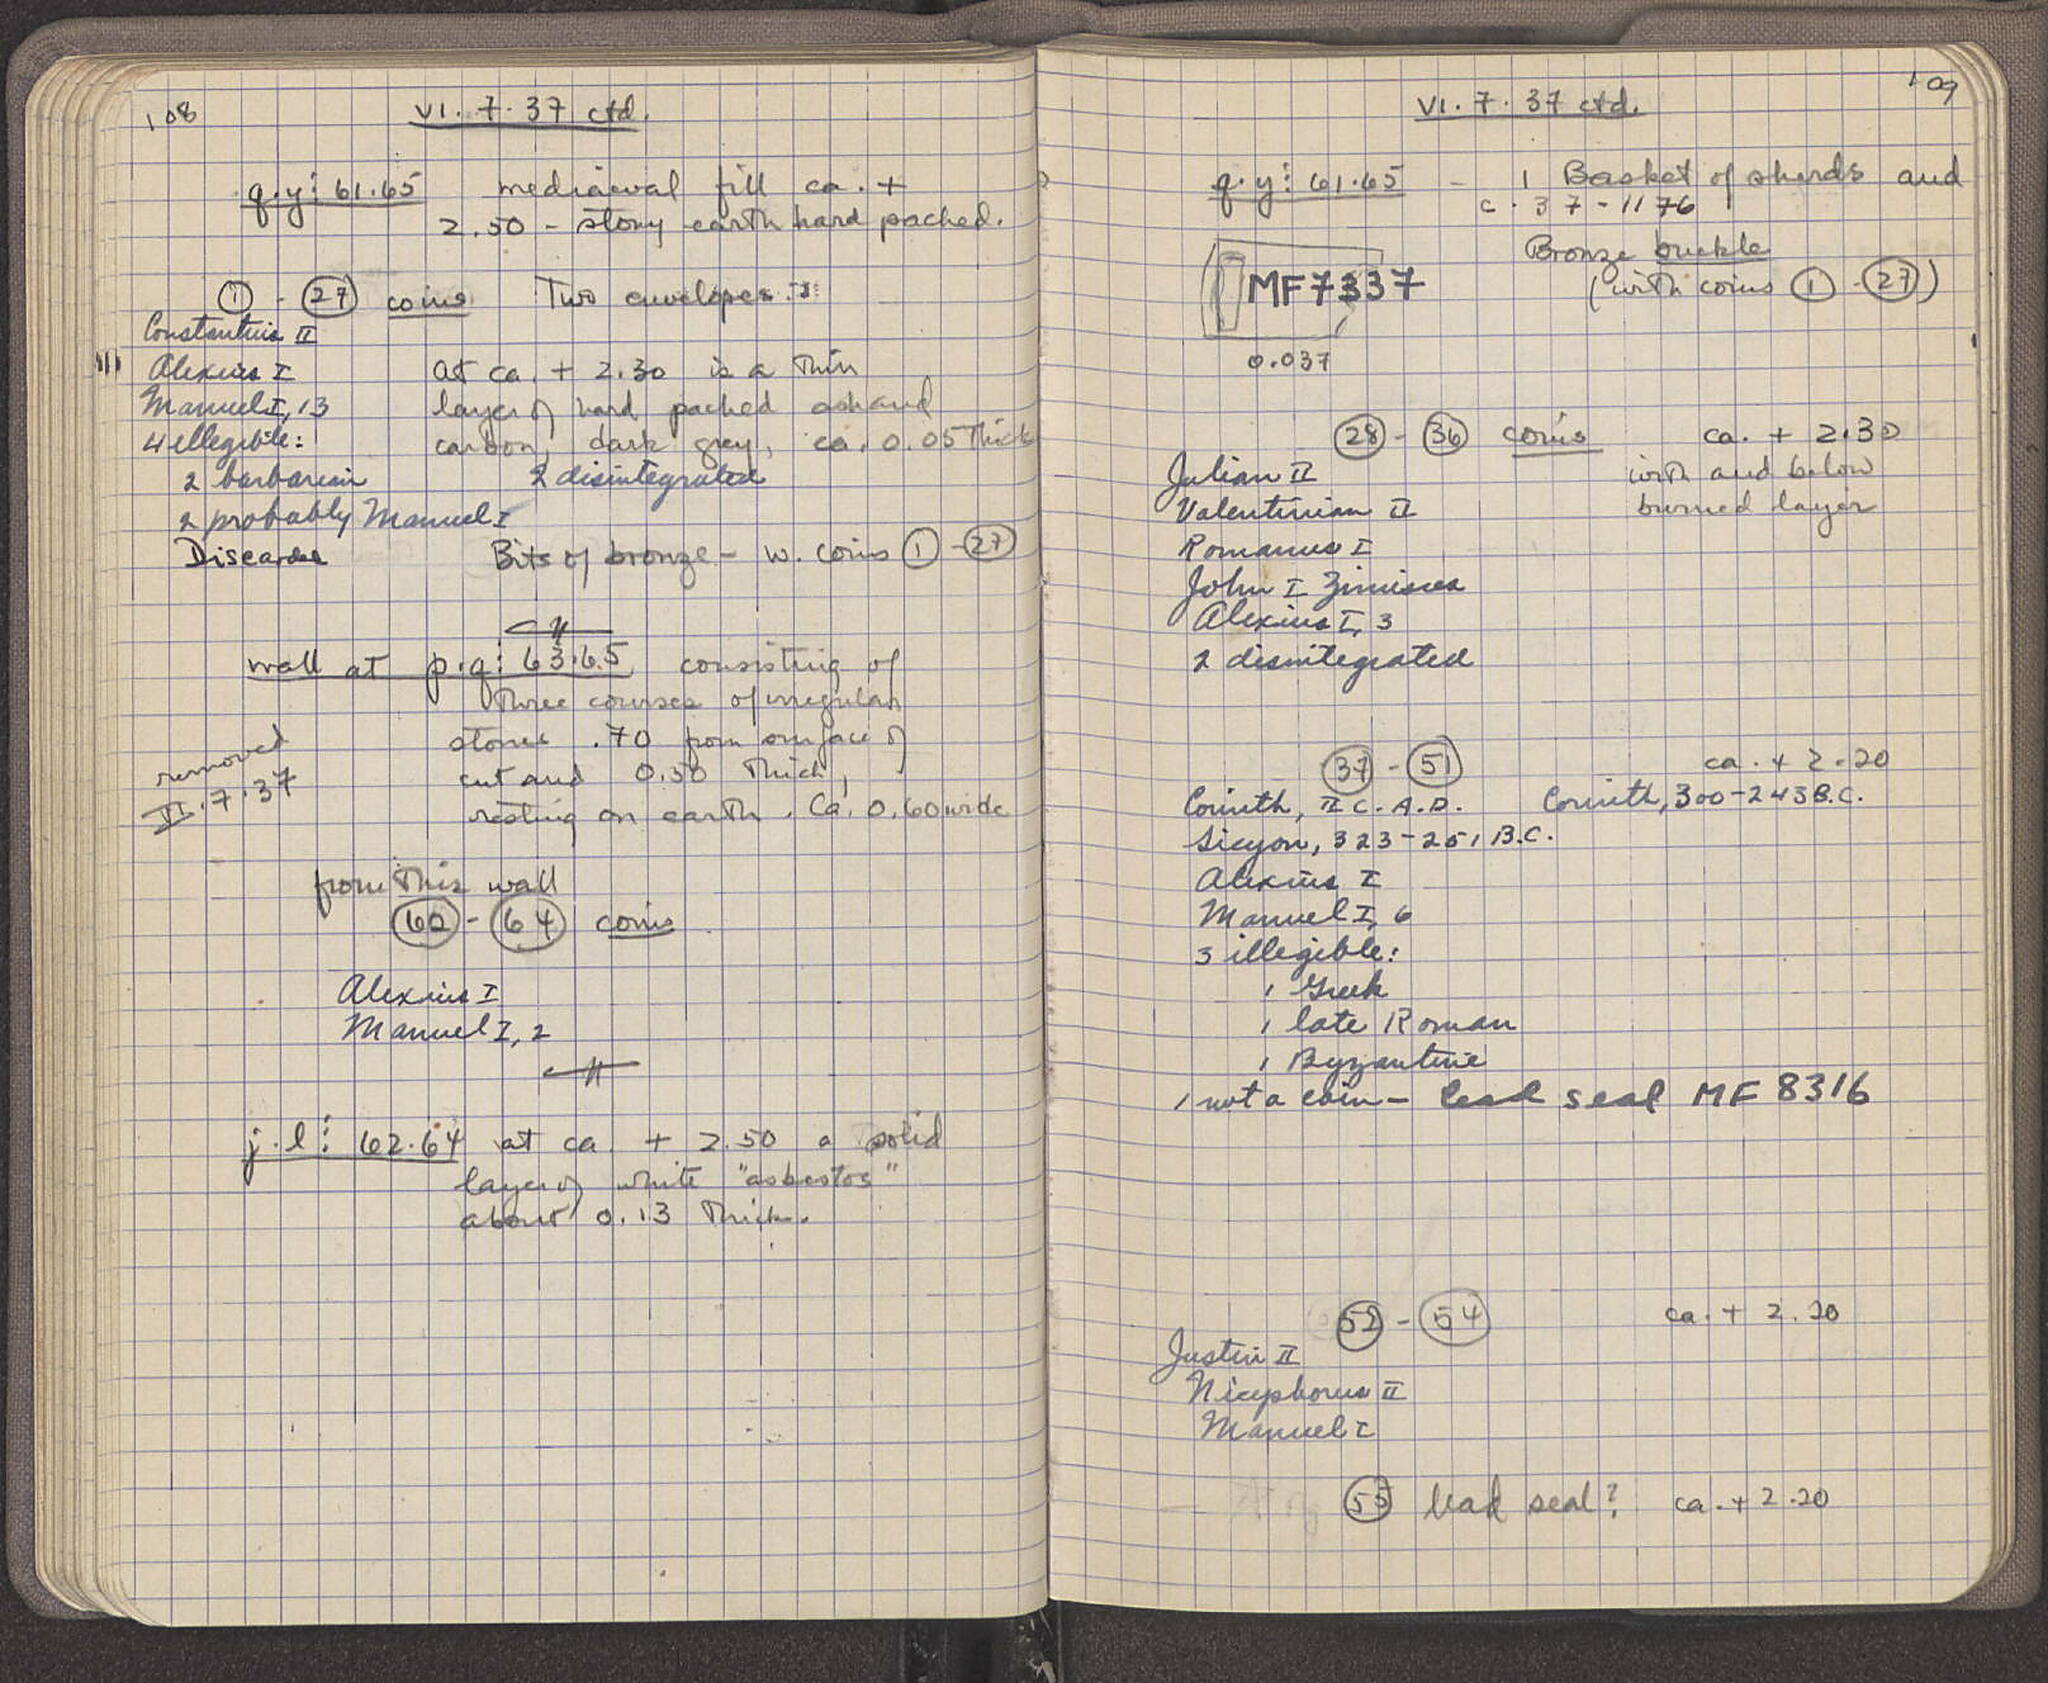 108
VI. 7. 37 ctd.
q.y: 61.65 mediaeval fill ca. +
2.50 - stony earth hard packed.
① - ㉗ coins Two envelopes
Constantius II
Alexius I at ca. + 2.30 is a thin
Manuel I, 13 layer of hard packed ash and
4 illegible: carbon, dark grey, ca. 0.05 thick
2 barbarian 2 disintegrated
2 probably Manuel I
Discarded Bits of bronze - w. coins ① - ㉗
wall at p.q: 63.65 consisting of
three courses of irregular
stones .70 from surface of
cut and 0.50 thick,
resting on earth. Ca. 0.60 wide
removed
VI.7.37
from this wall
(60) - (64) coins
Alexius I
Manuel I, 2
j.l: 62.64 at ca. + 2.50 a solid
layer of white "asbestos"
about 0.13 thick.
109
VI. 7. 37 ctd.
q.y: 61.65 - 1 Basket of sherds and
c. 37-1176
Bronze buckle
(with coins ① - ㉗)
MF7337
0.037
㉘ - ㊱ coins ca. + 2.30
Julian II with and below
Valentinian II burned layer
Romanus I
John I Zimisces
Alexius I, 3
2 disintegrated
(37) - (51) ca. + 2.20
Corinth, II C. A.D. Corinth, 300-243 B.C.
Sicyon, 323-251 B.C.
Alexius I
Manuel I, 6
3 illegible:
1 Greek
1 late Roman
1 Byzantine
1 not a coin - lead seal MF 8316
(52) - (54) ca. + 2.20
Justin II
Nicephorus II
Manuel I
(55) lead seal? ca. + 2.20